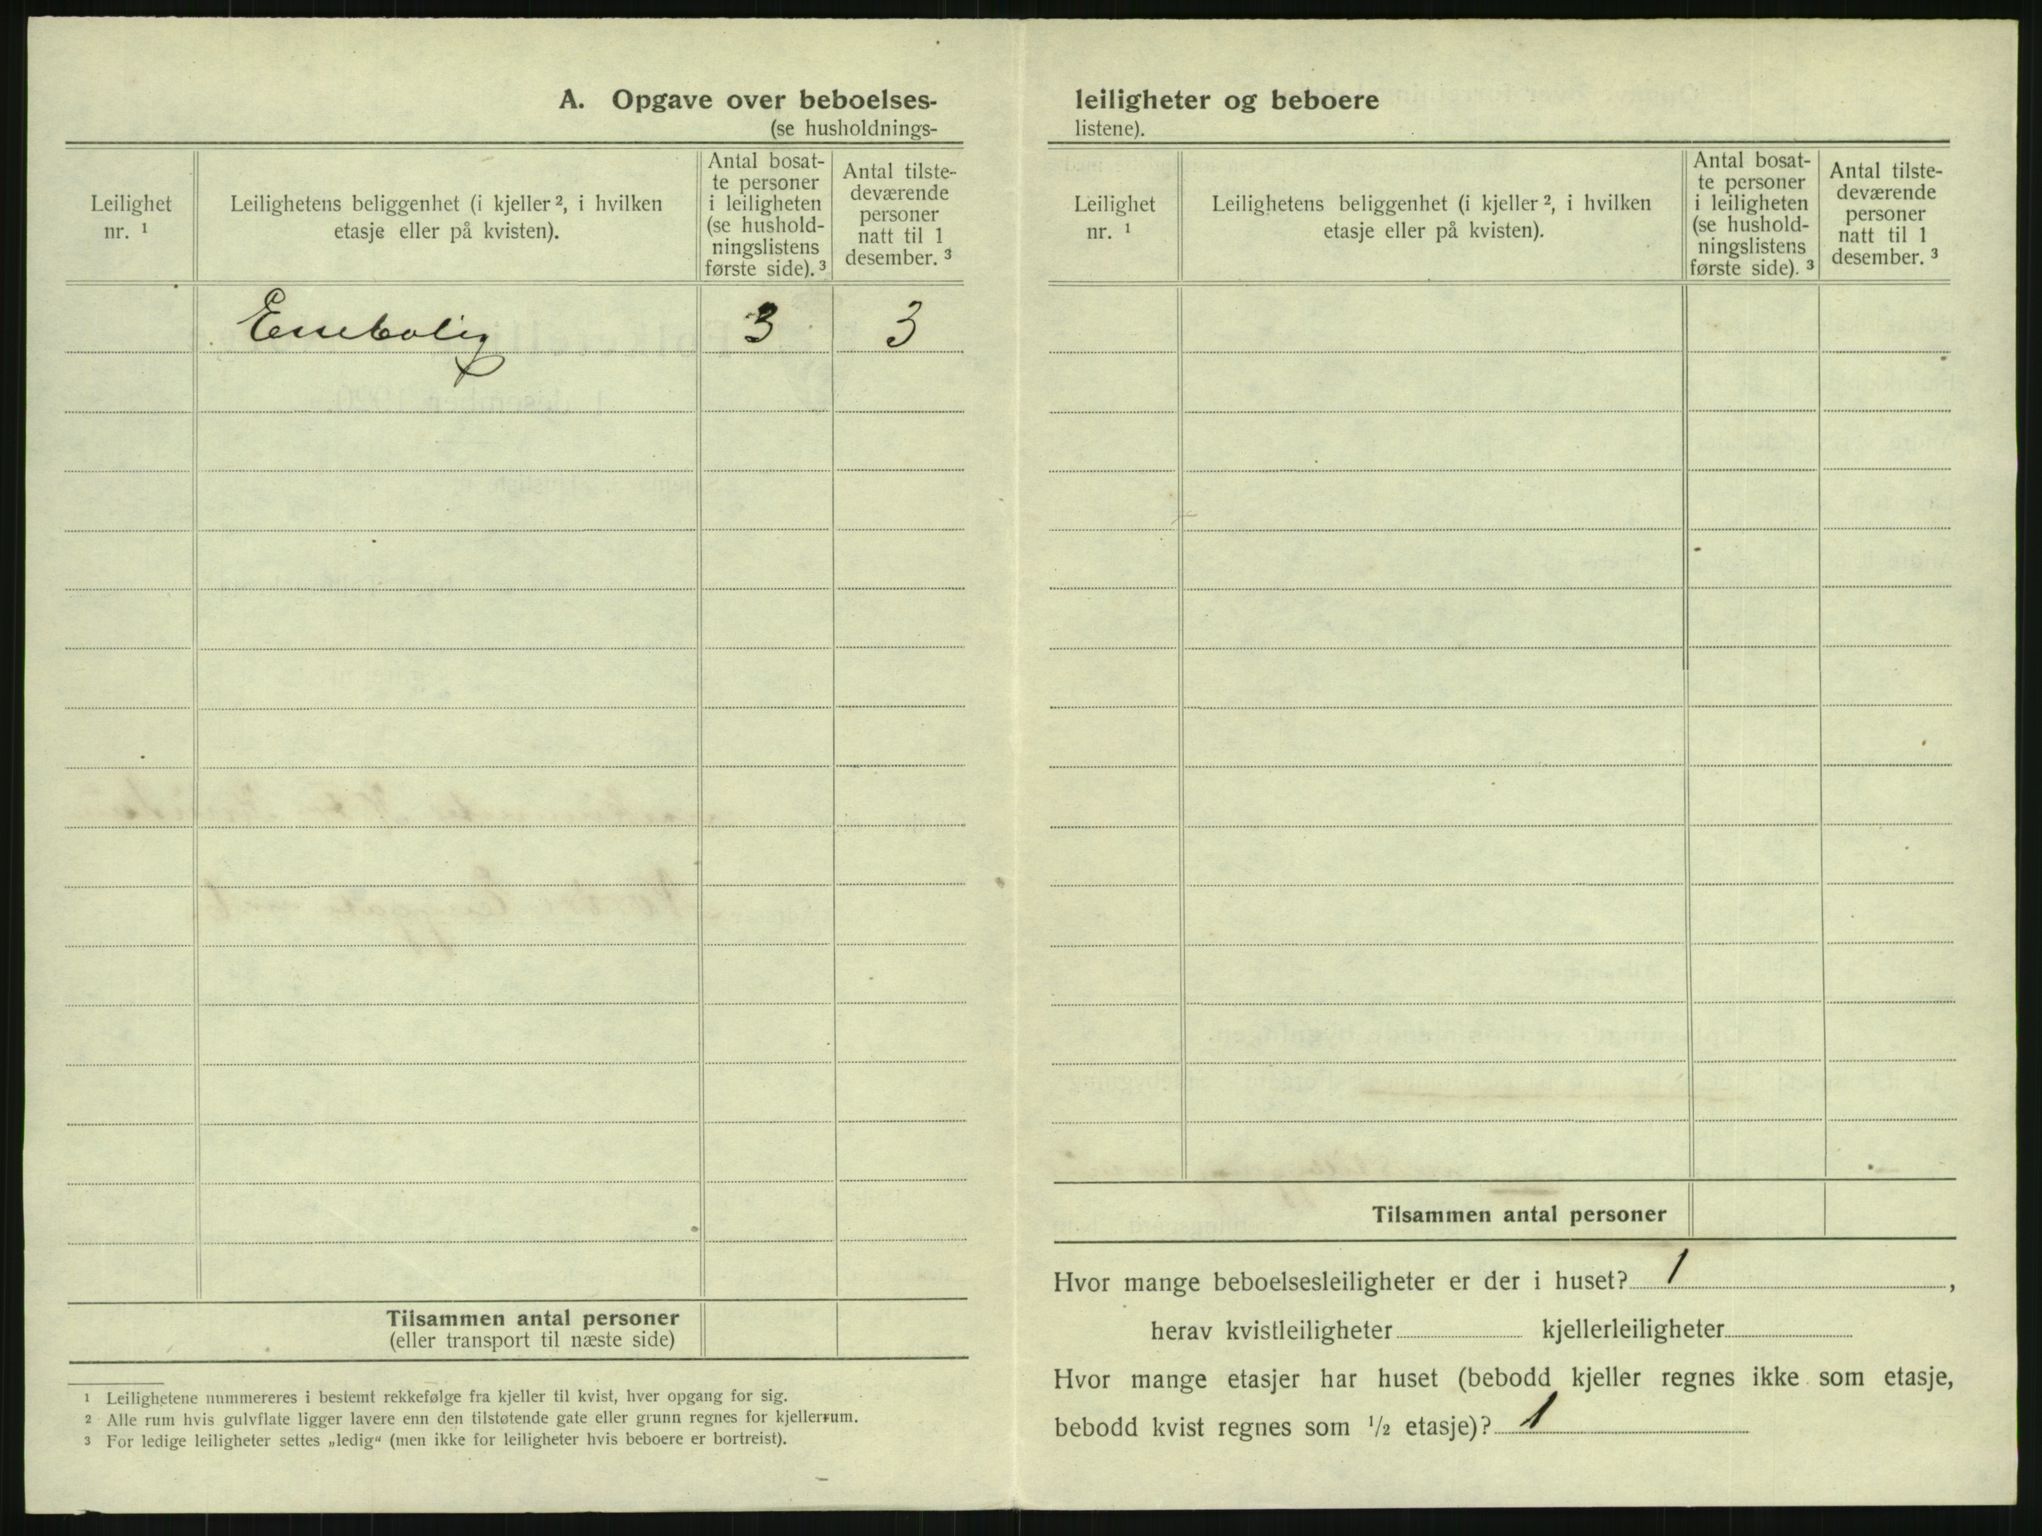 A. Opgave over beboelses-
(se husholdnings-
Leilighet
nr. ¹
Leilighetens beliggenhet (i kjeller ², i hvilken
etasje eller på kvisten).
Antal bosat-
te personer
i leiligheten
(se hushold-
ningslistens
første side). ³
Antal tilste-
deværende
personer
natt til 1
desember. ³
Enebolig 3 3
Tilsammen antal personer
(eller transport til næste side)
¹ Leilighetene nummereres i bestemt rekkefølge fra kjeller til kvist, hver opgang for sig.
² Alle rum hvis gulvflate ligger lavere enn den tilstøtende gate eller grunn regnes for kjellerrum.
³ For ledige leiligheter settes „ledig“ (men ikke for leiligheter hvis beboere er bortreist).
leiligheter og beboere
listene).
Leilighet
nr. ¹
Leilighetens beliggenhet (i kjeller ², i hvilken
etasje eller på kvisten).
Antal bosat-
te personer
i leiligheten
(se hushold-
ningslistens
første side). ³
Antal tilste-
deværende
personer
natt til 1
desember. ³
Tilsammen antal personer
Hvor mange beboelsesleiligheter er der i huset? 1 ,
herav kvistleiligheter kjellerleiligheter
Hvor mange etasjer har huset (bebodd kjeller regnes ikke som etasje,
bebodd kvist regnes som ½ etasje)? 1